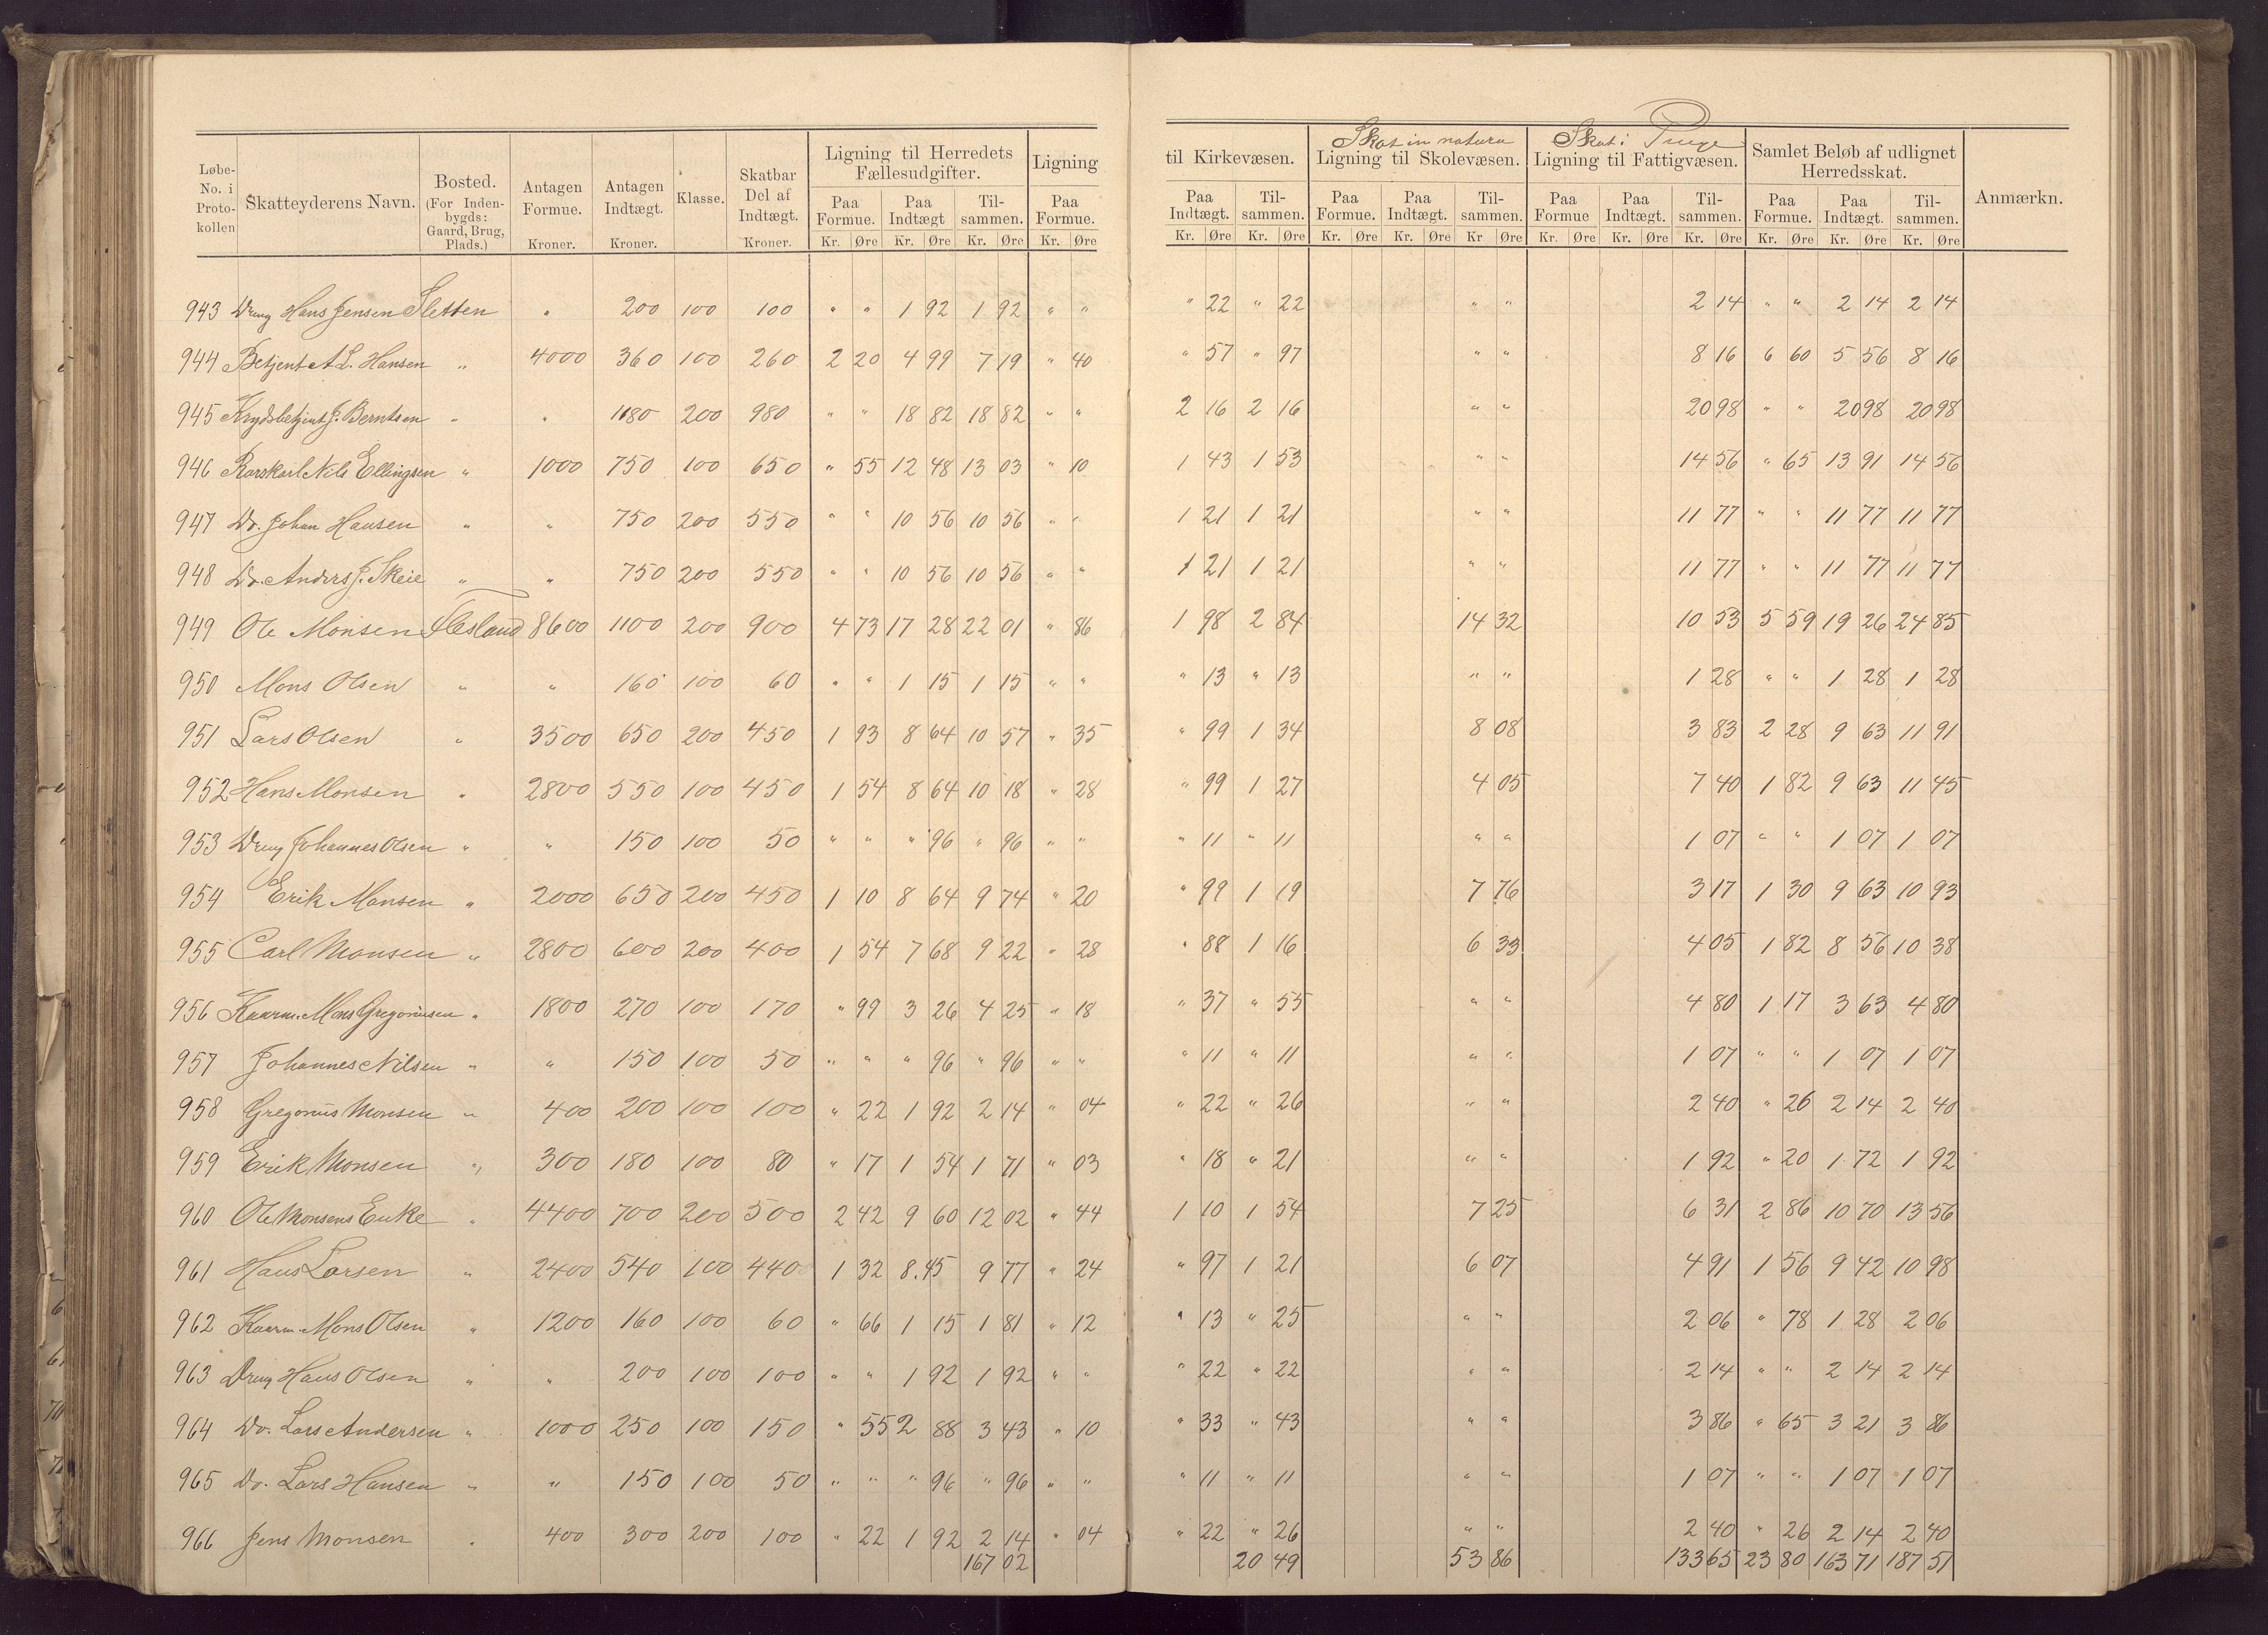 Løbe-No. i Protokollen | Skatteyderens Navn. | Bosted. (For Indenbygds: Gaard, Brug, Plads.) | Antagen Formue. Kroner. | Antagen Indtægt. Kroner. | Klasse. | Skatbar Del af Indtægt. Kroner. | Ligning til Herredets Fællesudgifter. Paa Formue. Kr. Øre | Paa Indtægt Kr. Øre | Tilsammen. Kr. Øre | Ligning Paa Formue. Kr. Øre | til Kirkevæsen. Paa Indtægt. Kr. Øre | Tilsammen. Kr. Øre | Skat in natura Ligning til Skolevæsen. Paa Formue. Kr. Øre | Paa Indtægt. Kr. Øre | Tilsammen. Kr Øre | Skat i Penge Ligning til Fattigvæsen. Paa Formue Kr. Øre | Paa Indtægt. Kr. Øre | Tilsammen. Kr. Øre | Samlet Beløb af udlignet Herredsskat. Paa Formue. Kr. Øre | Paa Indtægt. Kr. Øre | Tilsammen. Kr. Øre | Anmærkn.
943 Dreng Hans Jensen Sletten " 200 100 100 " " 1 92 1 92 " " " 22 " 22 " " 2 14 " " 2 14 2 14
944 Betjent A. L. Hansen " 4000 360 100 260 2 20 4 99 7 19 " 40 " 57 " 97 " " 8 16 6 60 5 56 8 16
945 Krydsbetjent J. Berntsen " " 1180 200 980 " " 18 82 18 82 " " 2 16 2 16 " " 20 98 " " 20 98 20 98
946 Karskarl Nils Ellingsen " 1000 750 100 650 " 55 12 48 13 03 " 10 1 43 1 53 " " 14 56 " 65 13 91 14 56
947 Do. Johan Hansen " " 750 200 550 " " 10 56 10 56 " " 1 21 1 21 " " 11 77 " " 11 77 11 77
948 Do. Anders J. Skeie " " 750 200 550 " " 10 56 10 56 " " 1 21 1 21 " " 11 77 " " 11 77 11 77
949 Ole Monsen Flesland 8600 1100 200 900 4 73 17 28 22 01 " 86 1 98 2 84 14 32 10 53 5 59 19 26 24 85
950 Mons Olsen " " 160 100 60 " " 1 15 1 15 " " " 13 " 13 " " 1 28 " " 1 28 1 28
951 Lars Olsen " 3500 650 200 450 1 93 8 64 10 57 " 35 " 99 1 34 8 08 3 83 2 28 9 63 11 91
952 Hans Monsen " 2800 550 100 450 1 54 8 64 10 18 " 28 " 99 1 27 4 05 7 40 1 82 9 63 11 45
953 Dreng Johannes Olsen " " 150 100 50 " " " 96 " 96 " " " 11 " 11 " " 1 07 " " 1 07 1 07
954 Erik Monsen " 2000 650 200 450 1 10 8 64 9 74 " 20 " 99 1 19 7 76 3 17 1 30 9 63 10 93
955 Carl Monsen " 2800 600 200 400 1 54 7 68 9 22 " 28 " 88 1 16 6 33 4 05 1 82 8 56 10 38
956 Kaarm. Mons Gregoriusen " 1800 270 100 170 " 99 3 26 4 25 " 18 " 37 " 55 " " 4 80 1 17 3 63 4 80
957 Johannes Nilsen " " 150 100 50 " " " 96 " 96 " " " 11 " 11 " " 1 07 " " 1 07 1 07
958 Gregorius Monsen " 400 200 100 100 " 22 1 92 2 14 " 04 " 22 " 26 " " 2 40 " 26 2 14 2 40
959 Erik Monsen " 300 180 100 80 " 17 1 54 1 71 " 03 " 18 " 21 " " 1 92 " 20 1 72 1 92
960 Ole Monsens Enke " 4400 700 200 500 2 42 9 60 12 02 " 44 1 10 1 54 7 25 6 31 2 86 10 70 13 56
961 Hans Larsen " 2400 540 100 440 1 32 8.45 9 77 " 24 " 97 1 21 6 07 4 91 1 56 9 42 10 98
962 Kaarm. Mons Olsen " 1200 160 100 60 " 66 1 15 1 81 " 12 " 13 " 25 " " 2 06 " 78 1 28 2 06
963 Dreng Hans Olsen " " 200 100 100 " " 1 92 1 92 " " " 22 " 22 " " 2 14 " " 2 14 2 14
964 Do. Lars Andersen " 1000 250 100 150 " 55 2 88 3 43 " 10 " 33 " 43 " " 3 86 " 65 3 21 3 86
965 Do. Lars Hansen " " 150 100 50 " " " 96 " 96 " " " 11 " 11 " " 1 07 " " 1 07 1 07
966 Jens Monsen " 400 300 200 100 " 22 1 92 2 14 " 04 " 22 " 26 " " 2 40 " 26 2 14 2 40
167 02 20 49 53 86 133 65 23 80 163 71 187 51